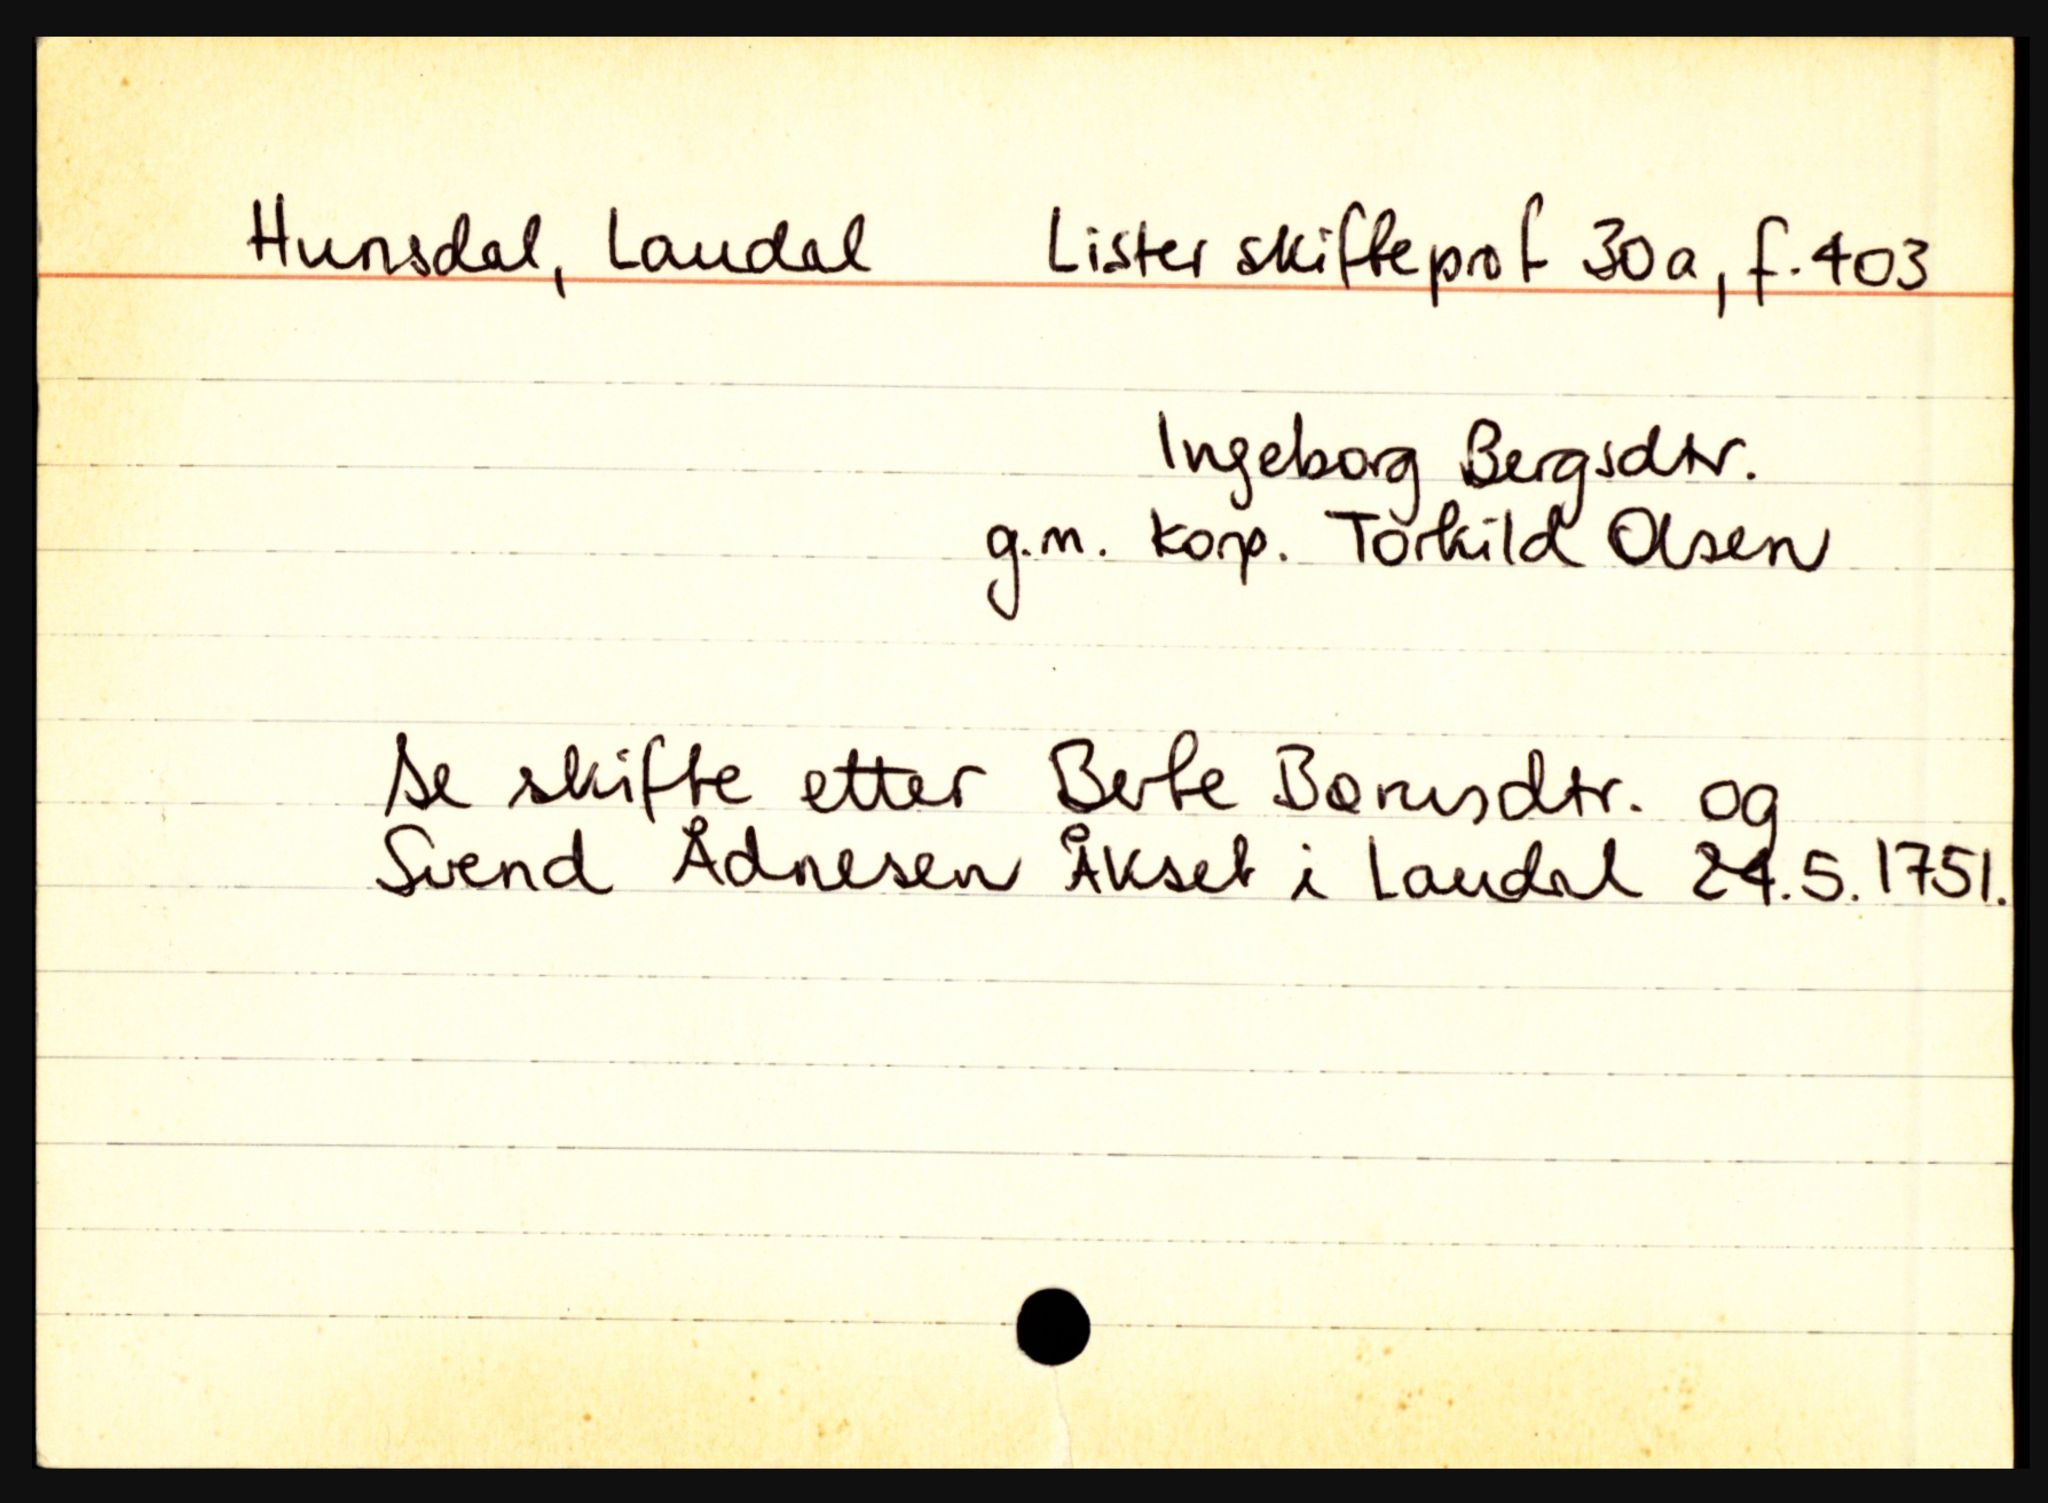 Hunsdal, Laudal Lister skifteprot 30a, f. 403
Ingeborg Bergsdtr.
g.m. korp. Torkild Olsen
Se skifte etter Berte
og
Svend Ådnesen Åkset i Laudal 24.5.1751.